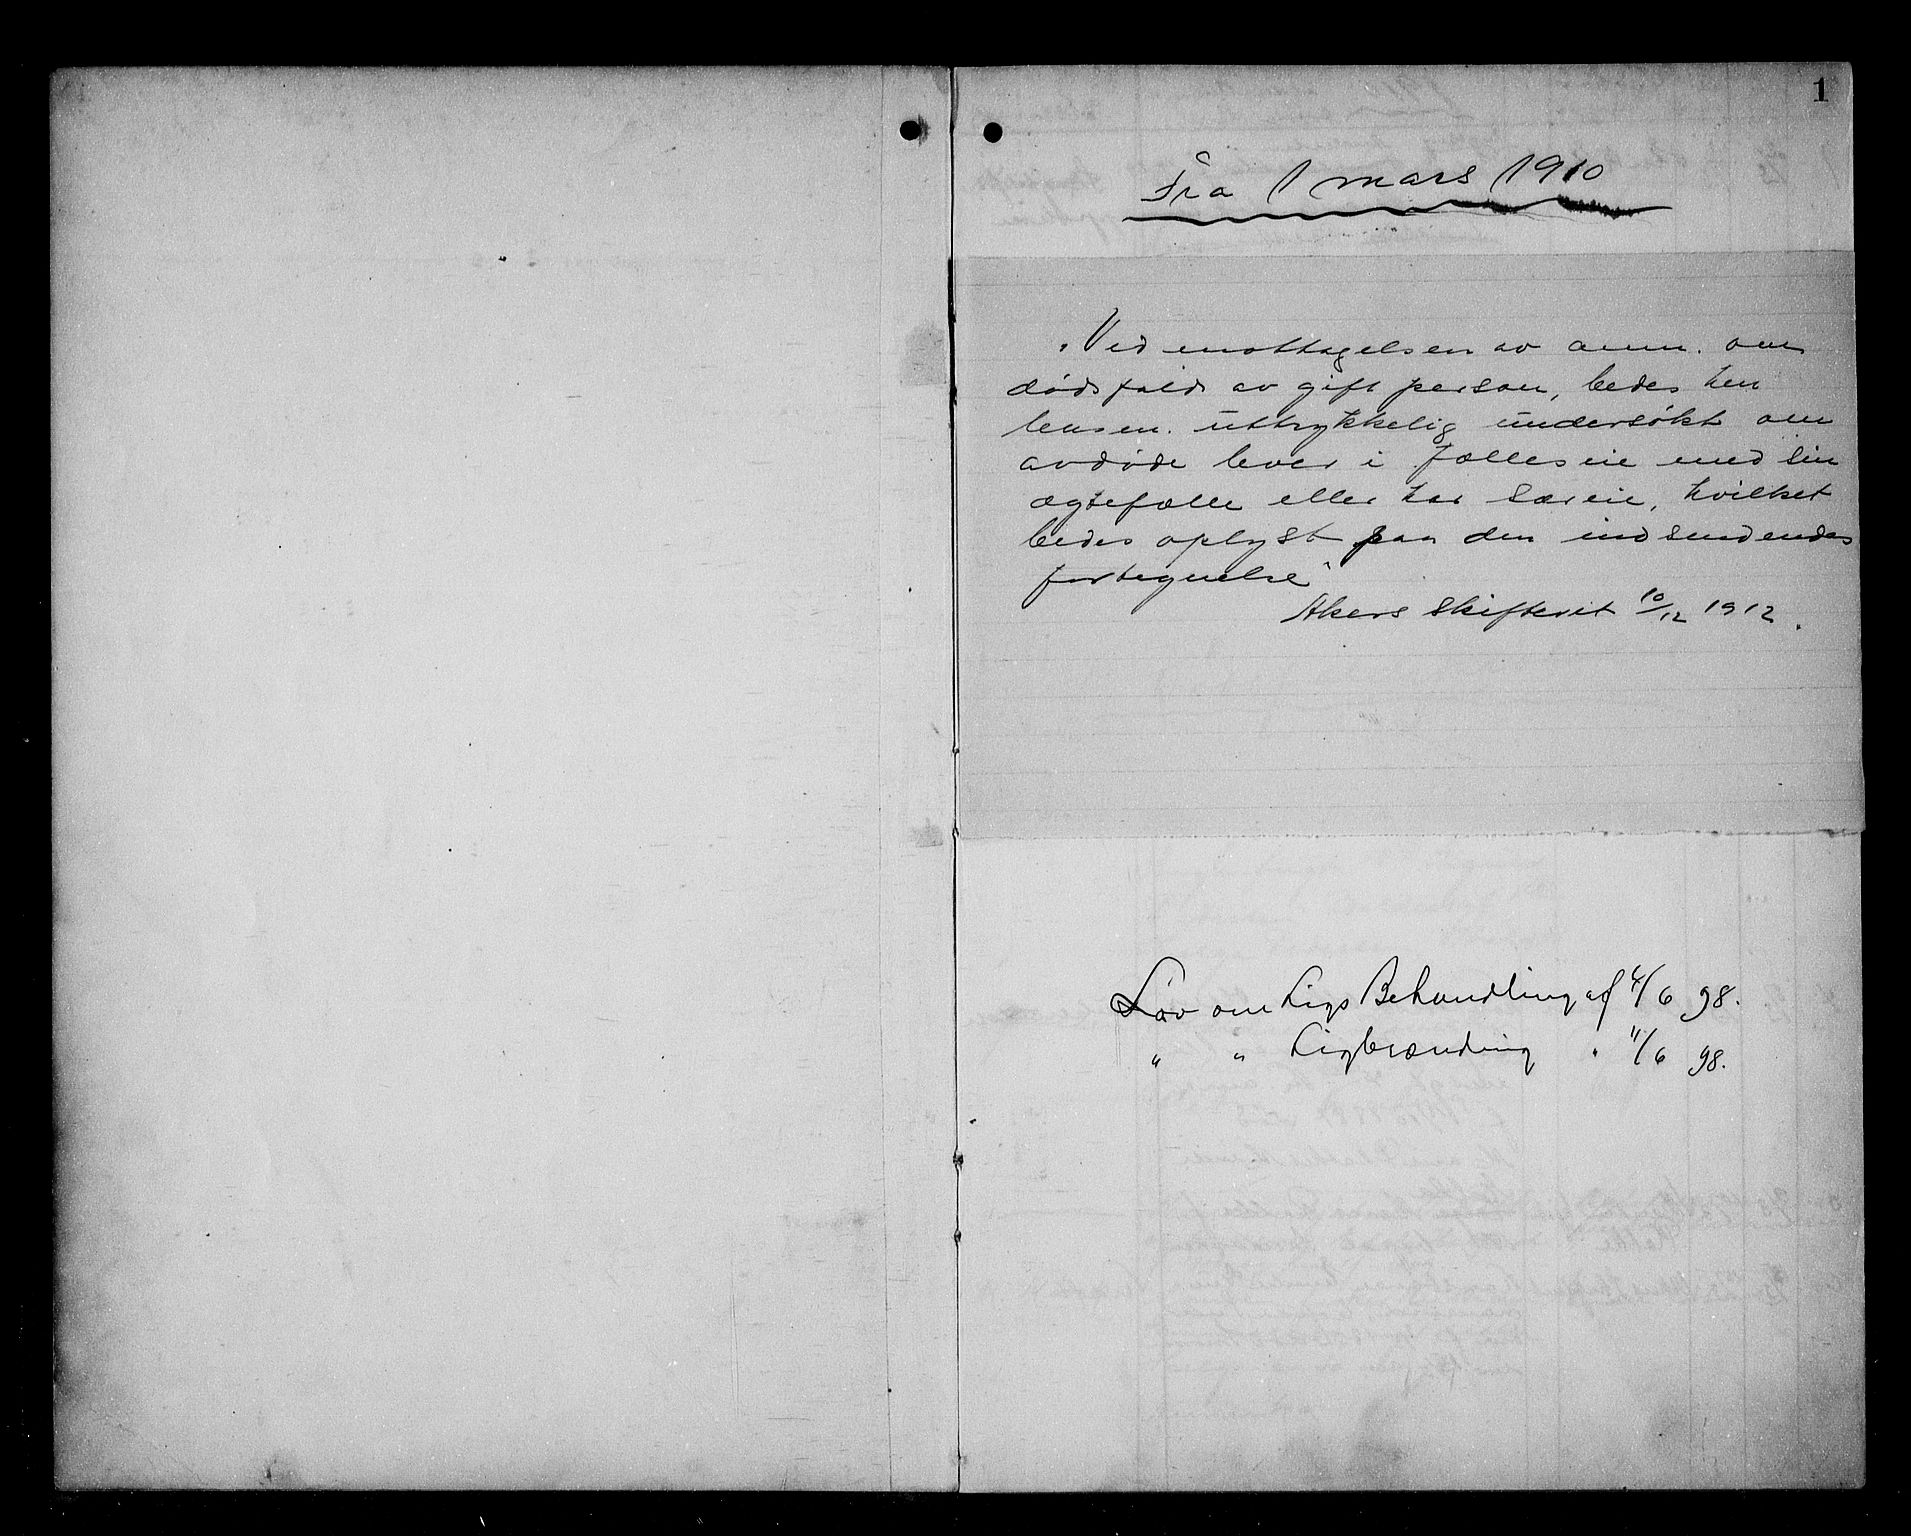 1
Fra 1 mars 1910
„Ved mottagelsen av anm. om
dødsfald av gift person, bedes hen
lensm. uttrykkelig undersøkt om
avdøde lever i fælleseie med sin
ægtefælle eller har særeie, hvilket
bedes oplyst paa den indsendendes
fortegnelse"
Akers skifteret 10/12 1912.
Lov om Ligs Behandling af 4/6 98.
" " Ligbrænding " 11/6 98.